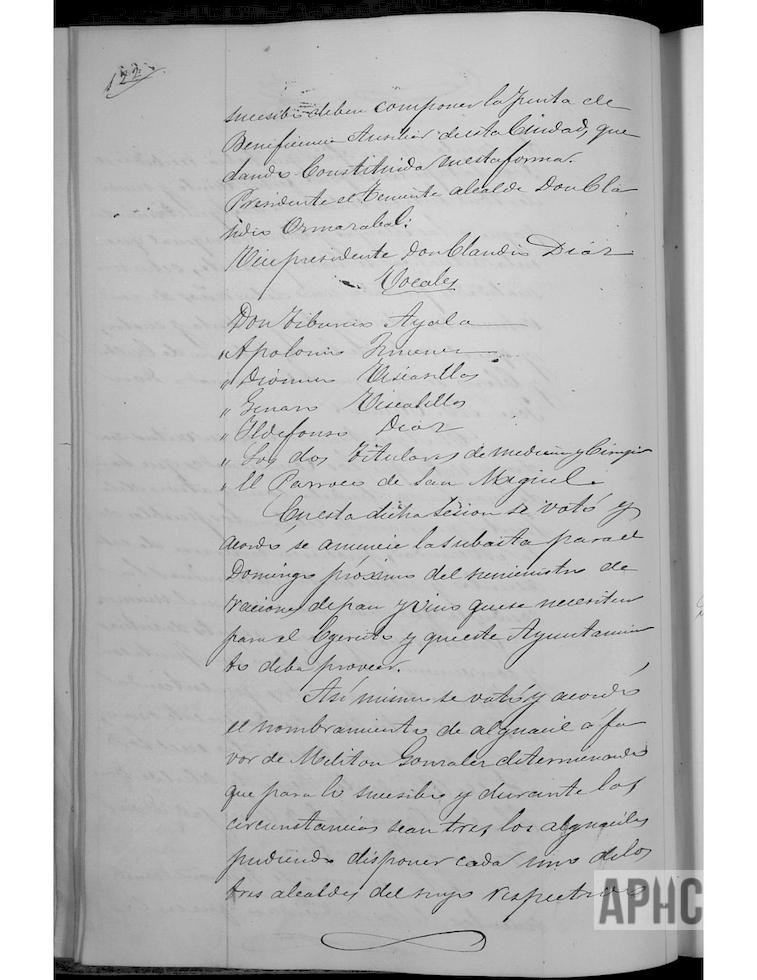 122
sucesibo deben componer la Junta de
Beneficencia Ausiliar de esta Ciudad, que
dando Constituida en esta forma.
Presidente el teniente alcalde Don Cla
udio Ormazabal.
Vicepresidente Don Claudio Diaz
Vocales
Don Tiburcio Ayala
" Apolonio Jimenez
" Dionisio Viscasillas
" Genaro Viscasillas
" Ildefonso Diaz
" Los dos Titulares de medicina y Cirugia
" El Parroco de San Miguel.
En esta dicha Sesion se votó y
acordó se anuncie la subasta para el
Domingo próximo del suministro de
raciones de pan y vino que se necesiten
para el Egercito y que este Ayuntamien
to deba proveer.
Asi mismo se votó y acordó
el nombramiento de alguacil a fa
vor de Meliton Gonzalez determinando
que para lo sucesibo y durante las
circunstancias sean tres los alguaciles
pudiendo disponer cada uno de los
tres alcaldes del suyo respectivo
APHC